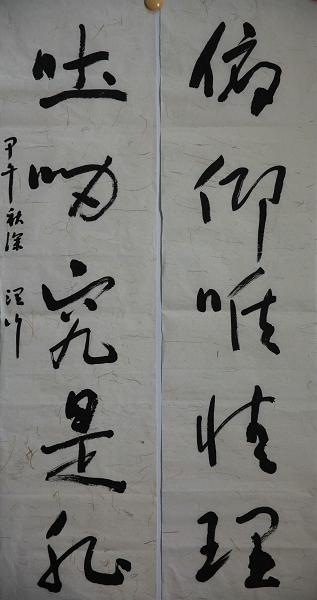 俯仰唯情理
吐究是非
甲午秋深